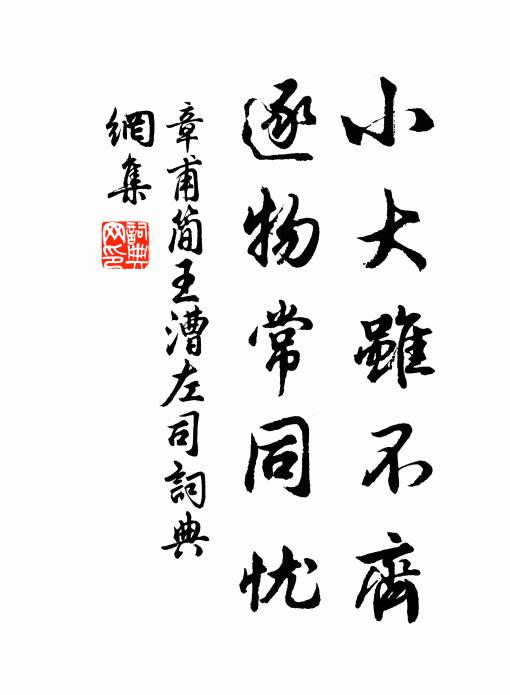 小大雖不齊
逐物常同忧
章甫简王漕左司詞典
網集
詞典网印